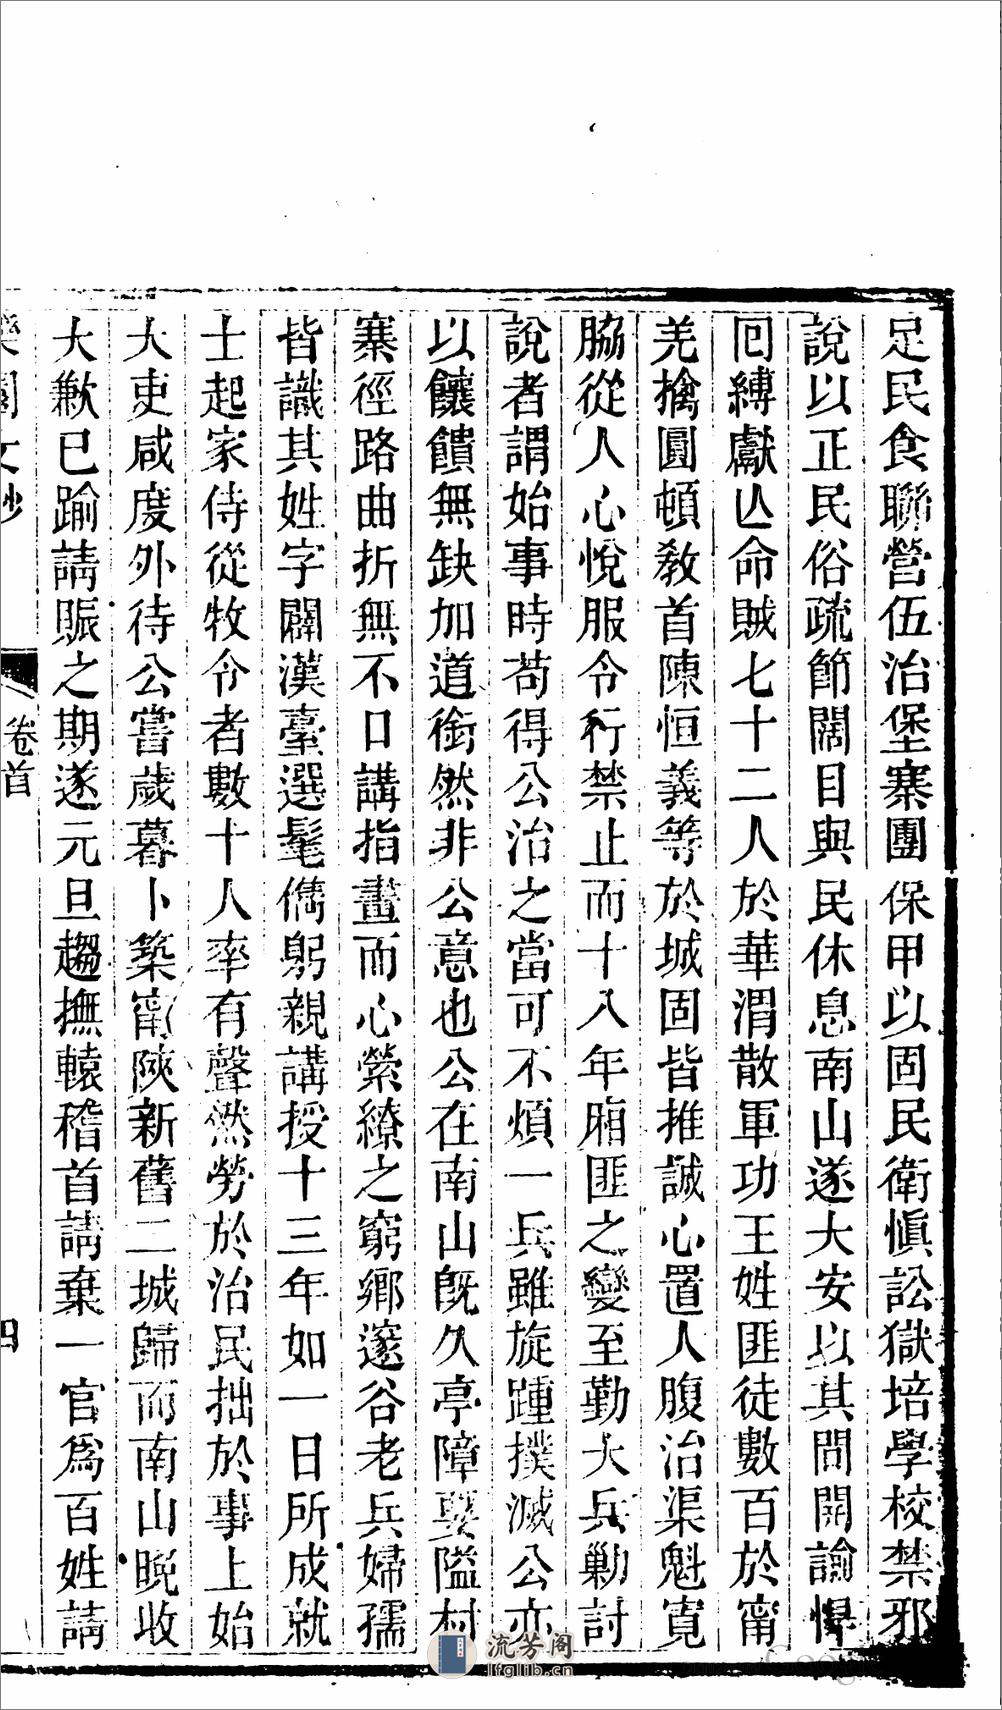 足民食聯營伍治堡寨團保甲以固民衛愼訟獄培學校禁邪
說以正民俗疏節闊目與民休息南山遂大安以其間開諭悍
囘縛獻亾命賊七十二人於華渭散軍功王姓匪徒數百於甯
羌擒圓頓敎首陳恒義等於城固皆推誠心置人腹治渠魁寬
脇從人心悅服令行禁止而十八年廂匪之變至勤大兵勦討
說者謂始事時苟得公治之當可不煩一兵雖旋踵撲滅公亦
以饟饋無缺加道銜然非公意也公在南山旣久亭障要隘村
寨徑路曲折無不口講指畫而心縈繚之窮鄉邃谷老兵婦孺
皆識其姓字闢漢臺選髦儁躬親講授十三年如一日所成就
士起家侍從牧令者數十人率有聲然勞於治民拙於事上始
大吏咸度外待公嘗歲暮卜築甯陜新舊二城歸而南山晚收
大歉已踰請賑之期遂元旦趨撫轅稽首請棄一官爲百姓請
樂園文鈔
卷首
四
流芳阁
lfglib.cn